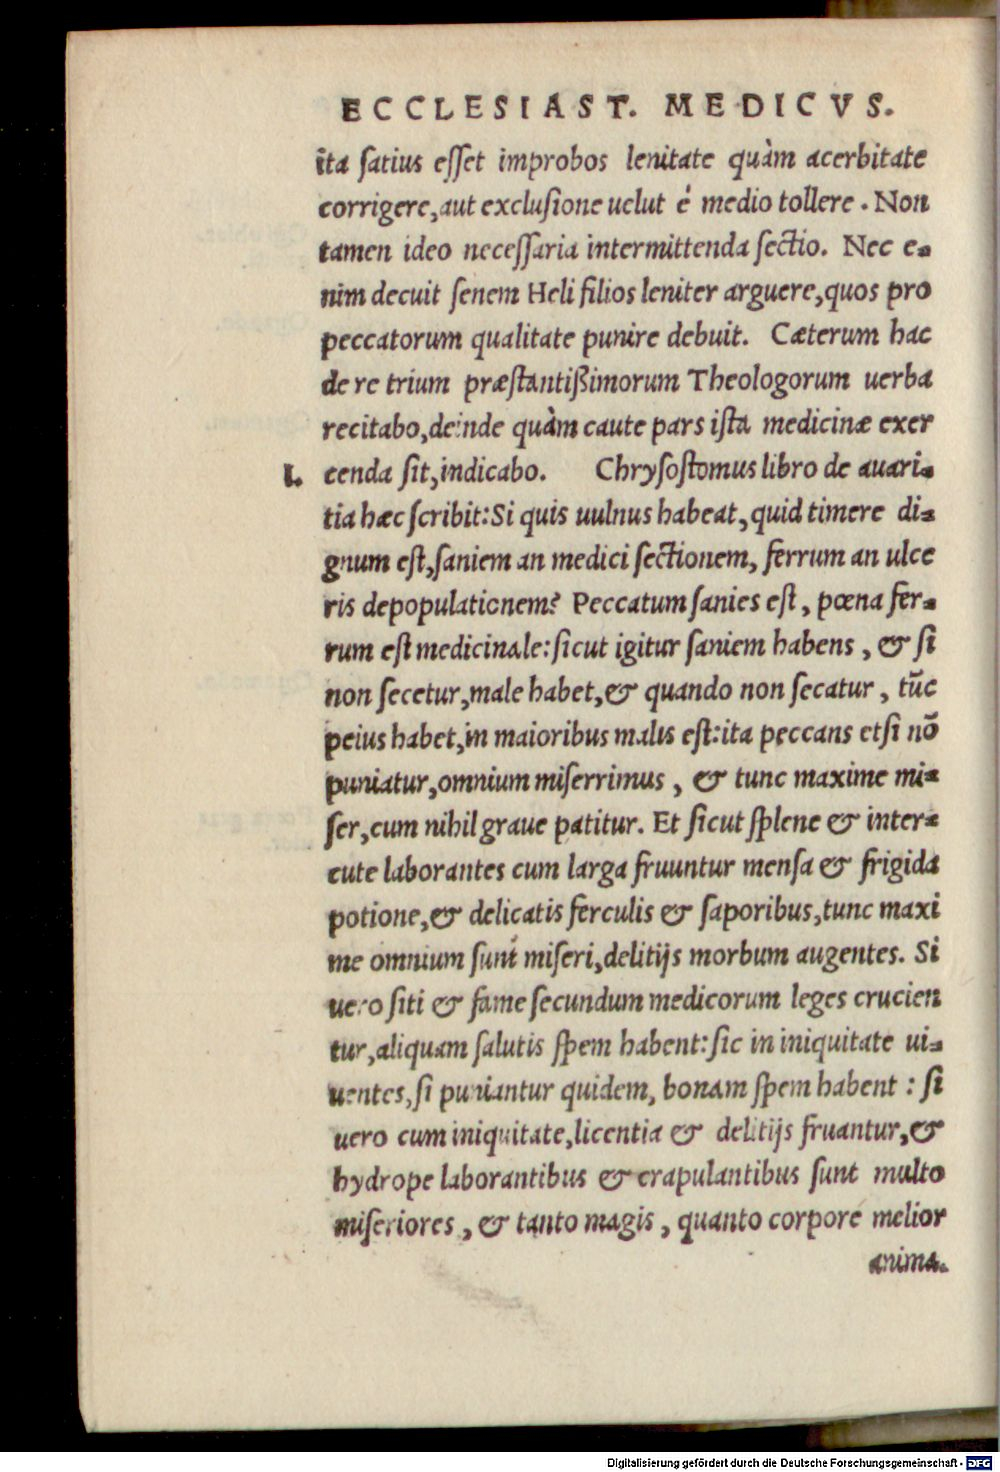 ECCLESIAST. MEDICVS.
ita ſatius eſſet improbos lenitate quàm acerbitate
corrigere, aut excluſione uelut è medio tollere. Non
tamen ideo neceſſaria intermittenda ſectio. Nec e-
nim decuit ſenem Heli filios leniter arguere, quos pro
peccatorum qualitate punire debuit. Cæterum hac
de re trium præſtantißimorum Theologorum uerba
recitabo, deinde quàm caute pars iſta medicinæ exer
I. cenda ſit, indicabo. Chryſoſtomus libro de auari-
tia hæc ſcribit: Si quis uulnus habeat, quid timere di-
gnum eſt, ſaniem an medici ſectionem, ferrum an ulce
ris depopulationem? Peccatum ſanies eſt, pœna fer-
rum eſt medicinale: ſicut igitur ſaniem habens, & ſi
non ſecetur, male habet, & quando non ſecatur, tūc
peius habet, in maioribus malis eſt: ita peccans etſi nō
puniatur, omnium miſerrimus, & tunc maxime mi-
ſer, cum nihil graue patitur. Et ſicut ſplene & inter-
cute laborantes cum larga fruuntur menſa & frigida
potione, & delicatis ferculis & ſaporibus, tunc maxi
me omnium ſunt miſeri, delitijs morbum augentes. Si
uero ſiti & fame ſecundum medicorum leges crucien
tur, aliquam ſalutis ſpem habent: ſic in iniquitate ui-
uentes, ſi puniantur quidem, bonam ſpem habent: ſi
uero cum iniquitate, licentia & delitijs fruantur, &
hydrope laborantibus & crapulantibus ſunt multo
miſeriores, & tanto magis, quanto corpore melior
anima.
Digitalisierung gefördert durch die Deutsche Forschungsgemeinschaft - DFG